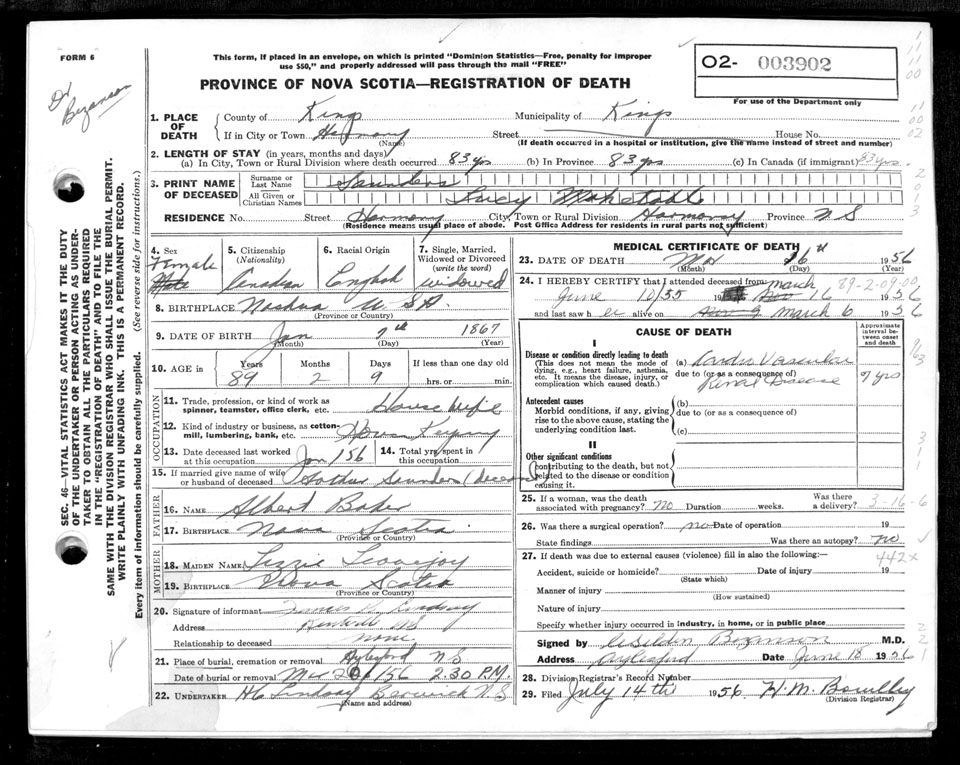 FORM 6
This form, if placed in an envelope, on which is printed "Dominion Statistics—Free, penalty for improper
use $50," and properly addressed will pass through the mail "FREE"
PROVINCE OF NOVA SCOTIA—REGISTRATION OF DEATH
O2- 003902
For use of the Department only
Dr Bezanson
SEC. 46—VITAL STATISTICS ACT MAKES IT THE DUTY
OF THE UNDERTAKER OR PERSON ACTING AS UNDER-
TAKER TO OBTAIN ALL THE PARTICULARS REQUIRED
IN THE "REGISTRATION OF DEATH" AND TO FILE THE
SAME WITH THE DIVISION REGISTRAR WHO SHALL ISSUE THE BURIAL PERMIT.
WRITE PLAINLY WITH UNFADING INK. THIS IS A PERMANENT RECORD.
Every item of information should be carefully supplied. (See reverse side for instructions.)
1. PLACE OF DEATH
County of Kings Municipality of Kings
If in City or Town Harmony Street House No.
(Name) (If death occurred in a hospital or institution, give the name instead of street and number)
2. LENGTH OF STAY (in years, months and days)
(a) In City, Town or Rural Division where death occurred 83 yrs (b) In Province 83 yrs (c) In Canada (if immigrant) 83 yrs.
3. PRINT NAME OF DECEASED
Surname or Last Name Saunders
All Given or Christian Names Lucy
RESIDENCE No. Street Harmony City, Town or Rural Division Harmony Province N S
(Residence means usual place of abode. Post Office Address for residents in rural parts not sufficient)
4. Sex Female Male
5. Citizenship (Nationality) Canadian
6. Racial Origin English
7. Single, Married, Widowed or Divorced (write the word) widowed
8. BIRTHPLACE Nashua U.S.A.
(Province or Country)
9. DATE OF BIRTH Jan 7th 1867
(Month) (Day) (Year)
10. AGE in Years 89 Months 2 Days 9 If less than one day old hrs. or min.
OCCUPATION
11. Trade, profession, or kind of work as
spinner, teamster, office clerk, etc. House wife
12. Kind of industry or business, as cotton-
mill, lumbering, bank, etc. House Keeping
13. Date deceased last worked at this occupation Jan / 56 14. Total yrs. spent in this occupation
15. If married give name of wife or husband of deceased Saunders (deceased)
FATHER
16. NAME Albert Baker
17. BIRTHPLACE Nova Scotia
(Province or Country)
MOTHER
18. MAIDEN NAME Lizzie Lovejoy
19. BIRTHPLACE Nova Scotia
(Province or Country)
20. Signature of informant Lindsay
Address N S
Relationship to deceased none
21. Place of burial, cremation or removal Aylesford N S
Date of burial or removal 20 / 56 2.30 P.M.
22. UNDERTAKER H C Lindsay Berwick N. S
(Name and address)
MEDICAL CERTIFICATE OF DEATH
23. DATE OF DEATH Mar 16th 1956
(Month) (Day) (Year)
24. I HEREBY CERTIFY that I attended deceased from
89-2-09-00
June 10/55 19 march 16 1956
and last saw her alive on march 6 1956
CAUSE OF DEATH
Approximate interval between onset and death
I
Disease or condition directly leading to death
(This does not mean the mode of
dying, e.g., heart failure, asthenia,
etc. It means the disease, injury, or
complication which caused death.)
(a) Cardio Vascular
due to (or as a consequence of)
Renal Disease 7 yrs
Antecedent causes
Morbid conditions, if any, giving
rise to the above cause, stating the
underlying condition last.
(b)
due to (or as a consequence of)
(c)
II
Other significant conditions
contributing to the death, but not
related to the disease or condition
causing it.
25. If a woman, was the death
associated with pregnancy? no Duration weeks. Was there a delivery? 3-16-6
26. Was there a surgical operation? no Date of operation 19
State findings Was there an autopsy? no
27. If death was due to external causes (violence) fill in also the following:— 442x
Accident, suicide or homicide? Date of injury 19
(State which)
Manner of injury
(How sustained)
Nature of injury
Specify whether injury occurred in industry, in home, or in public place
Signed by Bezanson M.D.
Address Aylesford Date June 18 1956
28. Division Registrar's Record Number
29. Filed July 14th 1956 H. M.
(Division Registrar)